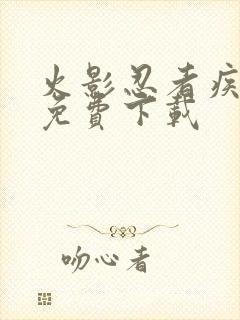 火影忍者疾
免費下載
吻心者